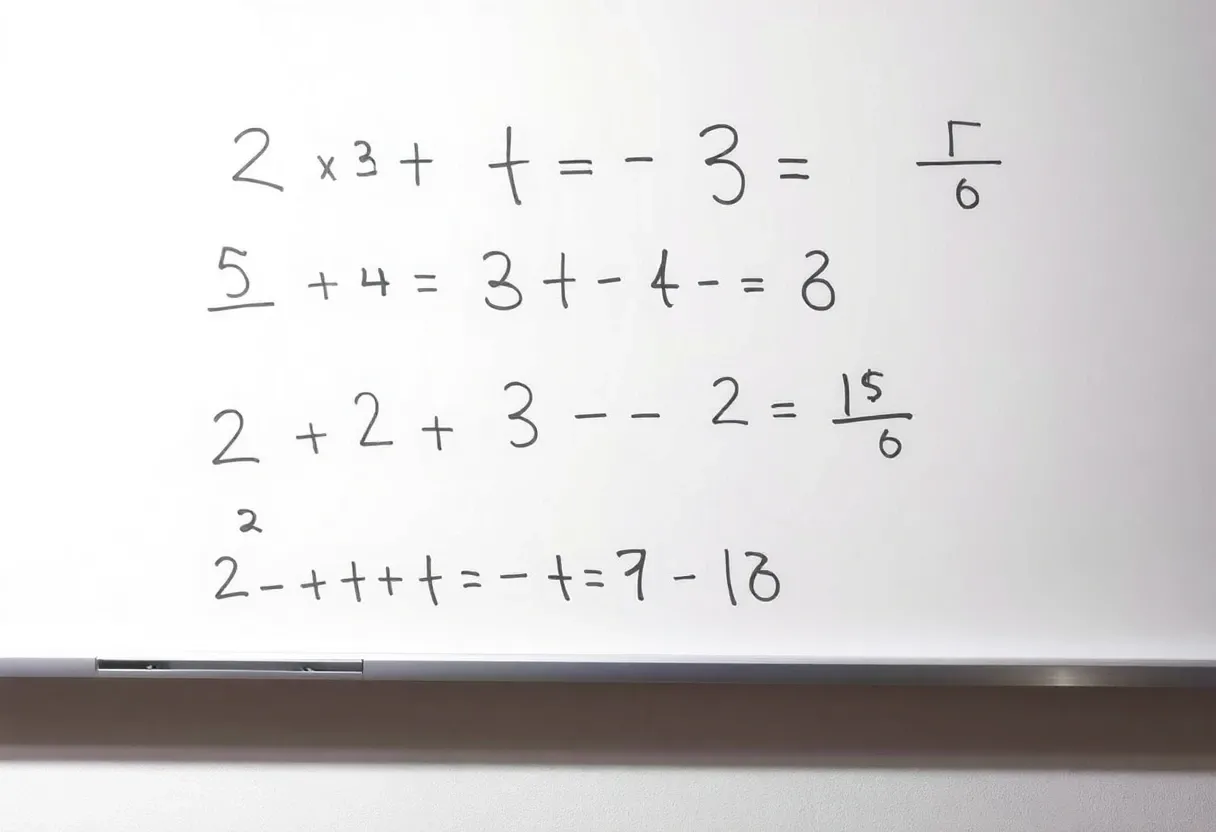 2 × 3 + t = - 3 = Γ/6
5 + 4 = 3 + - 4 - = 8
2 + 2 + 3 - - 2 = 15/6
2
2 - + t + t = - t = 7 - 18